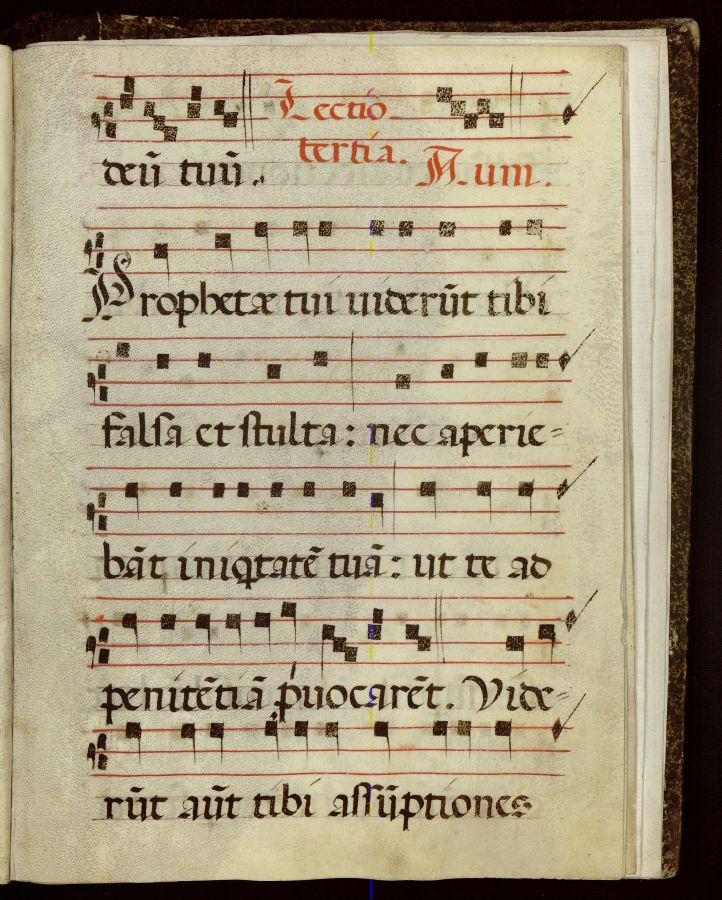 Lectio
deū tuū. tertia. Aum.
Prophetæ tui uiderūt tibi
falsa et stulta: nec aperie=
bāt iniqtatē tuā: ut te ad
penitētiā puocarēt. Vide=
rūt aūt tibi assūptiones